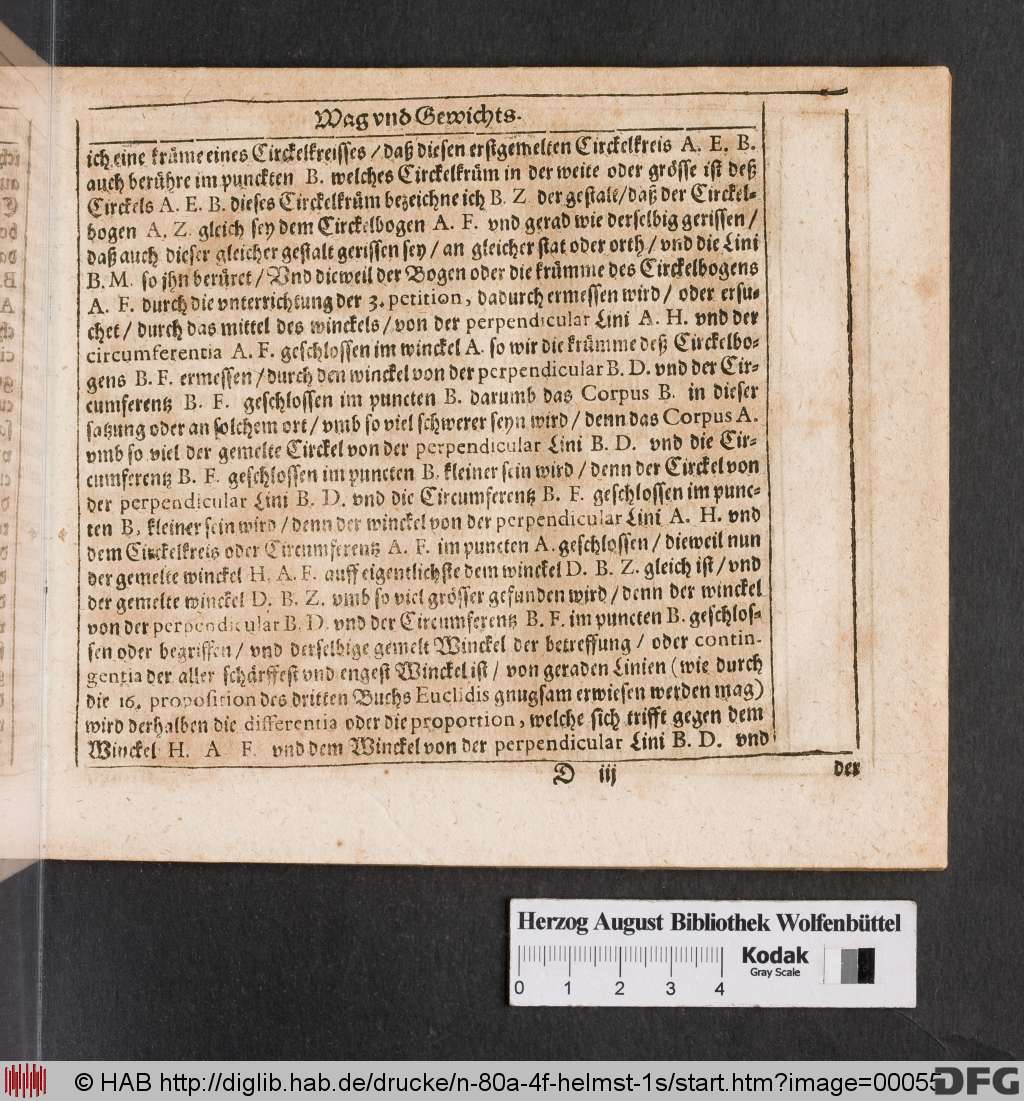 Wag vnd Gewichts.
ich eine krüme eines Circkelkreisses / daß diesen erstgemelten Circkelkreis A. E. B.
auch berühre im punckten B. welches Circkelkrüm in der weite oder grösse ist deß
Circkels A. E. B. dieses Circkelkrüm bezeichne ich B. Z. der gestalt/daß der Circkel-
bogen A. Z. gleich sey dem Circkelbogen A. F. vnd gerad wie derselbig gerissen /
daß auch dieser gleicher gestalt gerissen sey / an gleicher stat oder orth / vnd die Lini
B. M. so jhn berüret / Vnd dieweil der Bogen oder die krümme des Circkelbogens
A. F. durch die vnterrichtung der 3. petition, dadurch ermessen wird / oder ersu-
chet / durch das mittel des winckels / von der perpendicular Lini A. H. vnd der
circumferentia A. F. geschlossen im winckel A. so wir die krümme deß Circkelbo-
gens B. F. ermessen / durch den winckel von der perpendicular B. D. vnd der Cir-
cumferentz B. F. geschlossen im puncten B. darumb das Corpus B. in dieser
satzung oder an solchem ort / vmb so viel schwerer seyn wird / denn das Corpus A.
vmb so viel der gemelte Circkel von der perpendicular Lini B. D. vnd die Cir-
cumferentz B. F. geschlossen im puncten B. kleiner sein wird / denn der Circkel von
der perpendicular Lini B. D. vnd die Circumferentz B. F. geschlossen im punc-
ten B. kleiner sein wird / denn der winckel von der perpendicular Lini A. H. vnd
dem Circkelkreis oder Circumferentz A. F. im puncten A. geschlossen / dieweil nun
der gemelte winckel H. A. F. auff eigentlichste dem winckel D. B. Z. gleich ist / vnd
der gemelte winckel D. B. Z. vmb so viel grösser gefunden wird / denn der winckel
von der perpendicular B. D. vnd der Circumferentz B. F. im puncten B. geschlos-
sen oder begriffen / vnd derselbige gemelt Winckel der betreffung / oder contin-
gentia der aller schärffest vnd engest Winckel ist / von geraden Linien (wie durch
die 16. proposition des dritten Buchs Euclidis gnugsam erwiesen werden mag)
wird derhalben die differentia oder die proportion, welche sich trifft gegen dem
Winckel H. A. F. vnd dem Winckel von der perpendicular Lini B. D. vnd
D iij
der
Herzog August Bibliothek Wolfenbüttel
Kodak
Gray Scale
0 1 2 3 4
© HAB http://diglib.hab.de/drucke/n-80a-4f-helmst-1s/start.htm?image=00055
DFG